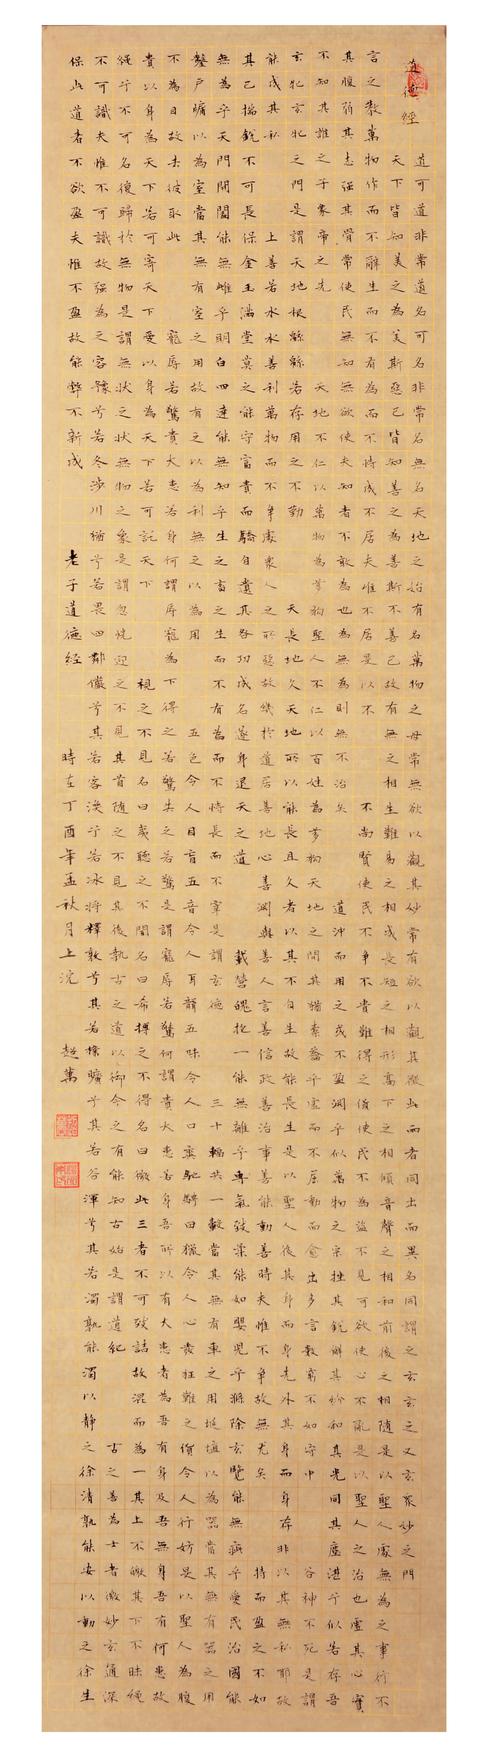 道德經
道可道非常道名可名非常名無名天地之始有名萬物之母常無欲以觀其妙常有欲以觀其徼此而者同出而異名同謂之玄玄之又玄衆妙之門
天下皆知美之為美斯惡已皆知善之為善斯不善已故有無之相生難易之相成長短之相形高下之相傾音聲之相和前後之相隨是以聖人處無為之事行不
言之教萬物作而不辭生而不有為而不恃成不居夫惟不居是以不 不尚賢使民不爭不貴難得之貨使民不為盜不見可欲使心不亂是以聖人之治也虛其心實
其腹弱其志強其骨常使民無知無欲使夫知者不敢為也為無為則無不治矣 道沖而用之或不盈淵乎似萬物之宗挫其銳解其紛和其光同其塵湛乎似若存吾
不知其誰之子象帝之先 天地不仁以萬物為芻狗聖人不仁以百姓為芻狗天地之間其猶橐籥乎虛而不屈動而愈出多言數窮不如守中 谷神不死是謂
玄牝玄牝之門是謂天地根緜緜若存用之不勤 天長地久天地所以能長且久者以其不自生故能長生是以聖人後其身而身先外其身而身存非以其無私耶故
能成其私 上善若水水善利萬物而不爭處衆人之所惡故幾於道居善地心善淵與善人言善信政善治事善能動善時夫惟不爭故無尤矣 持而盈之不如
其已揣銳不可長保金玉滿堂莫之能守富貴而驕自遺其咎功成名遂身退天之道 載營魄抱一能無離乎專氣致柔能如嬰兒乎滌除玄覽能無疵乎愛民治國能
無為乎天門開闔能無雌乎明白四達能無知乎生之畜之生而不有為而不恃長而不宰是謂玄德 三十輻共一轂當其無有車之用埏埴以為器當其無有器之用
鑿戶牖以為室當其無有室之用故有之以為利無之以為用 五色令人目盲五音令人耳聾五味令人口爽馳騁田獵令人心發狂難之貨令人行妨是以聖人為腹
不為目故去彼取此 寵辱若驚貴大患若身何謂辱寵為下得之若驚失之若驚是謂寵辱若驚何謂貴大患若身吾所以有大患者為吾有身及吾無身吾有何患故
貴以身為天下若可寄天下愛以身為天下若可託天下 視之不見名曰夷聽之不聞名曰希搏之不得名曰微此三者不可致詰故混而為一其上不皦其下不昧繩
繩乎不可名復歸於無物是謂無狀之狀無物之象是謂忽恍迎之不見其首隨之不見其後執古之道以御今之有能知古始是謂道紀 古之善為士者微妙玄通深
不可識夫惟不可識故强為之容豫兮若冬涉川猶兮若畏四鄰儼兮其若客渙兮若冰將釋敦兮其若樸曠兮其若谷渾兮其若濁孰能濁以靜之徐清孰能安以動之徐生
保此道者不欲盈夫惟不盈故能弊不新成 老子道德經 時在丁酉年孟秋月上浣 趙萬